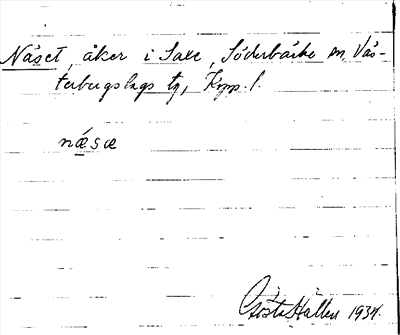 Näset, åker i Saxe, Söderbärke sn, Väs-
terbergslags tg, Kopp. l.
næsæ
Gösta Hallén 1934.